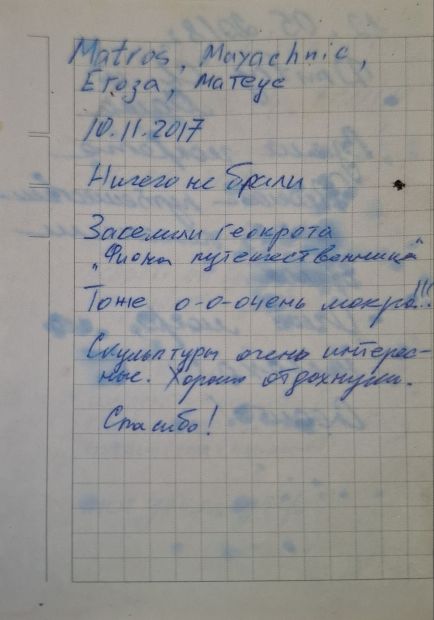 Matros, Mayachnic,
Егоза, Матеус
10.11.2017
Ничего не брали
Заселили геокрота
"Фиона путешественница"
Тоже о-о-очень мокро!!!
Скульптуры очень интерес-
ные. Хорошо отдохнули.
Спасибо!